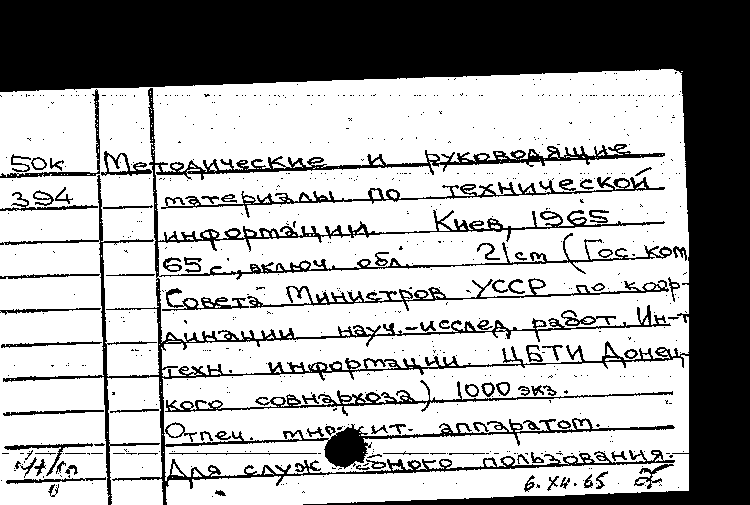 50к Методические и руководящие
394 материалы по технической
информации. Киев, 1965.
65 с., включ. обл. 21 cm (Гос. ком.
Совета Министров УССР по коор-
динации науч.-исслед. работ. Ин-т
техн. информации. ЦБТИ Донец-
кого совнархоза). 1000 экз.
Отпеч. множит. аппаратом.
Для служебного пользования.
6.XII.65